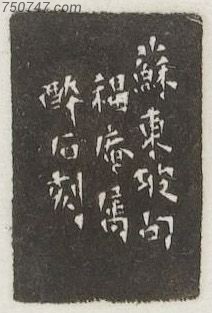 750747.com
蘇東坡句
褐庵屬
醉石刻